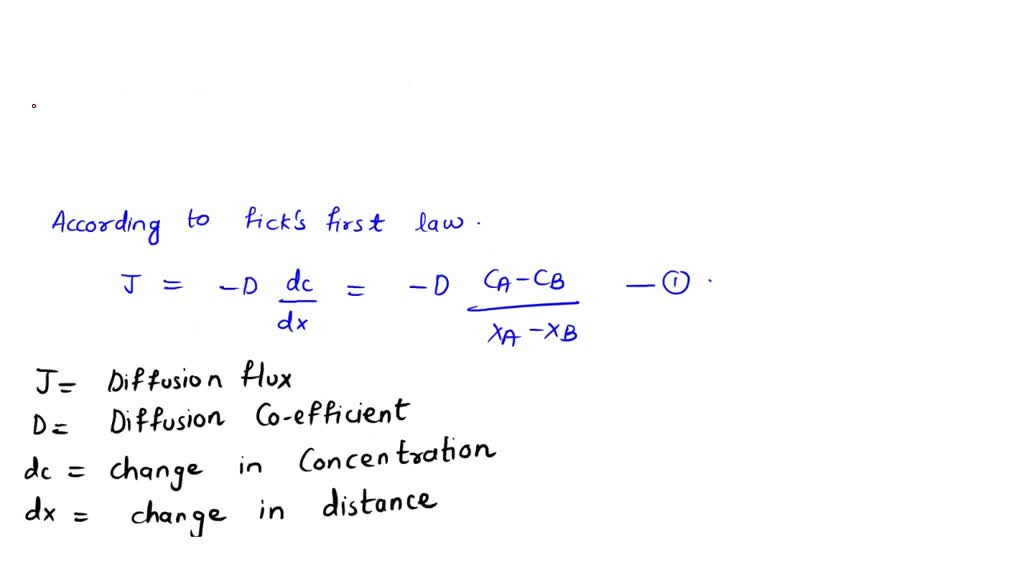 According to Fick's first law.
J = -D dc/dx = -D (CA-CB)/(xA-xB) — ①
J = Diffusion flux
D = Diffusion Co-efficient
dc = change in Concentration
dx = change in distance